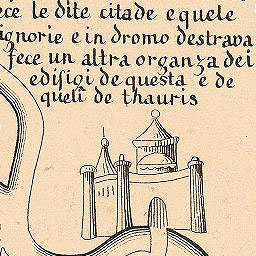 ece le dite citade e quele
ignorie e in dromo destrava
fece un altra organza dei
edifiçi de questa e de
queli de thauris